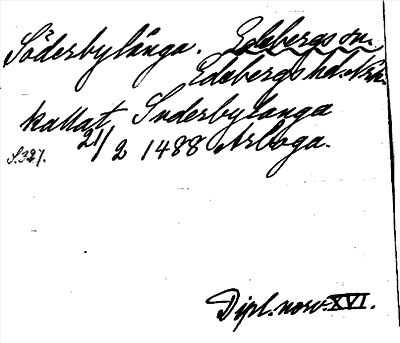 Söderbylånga. Edsbergs sn.
Edsbergs hd. Närk.
kallat Suderbylanga
21/2 1488 Arboga.
S. 327.
Dipl. norv. XVI.